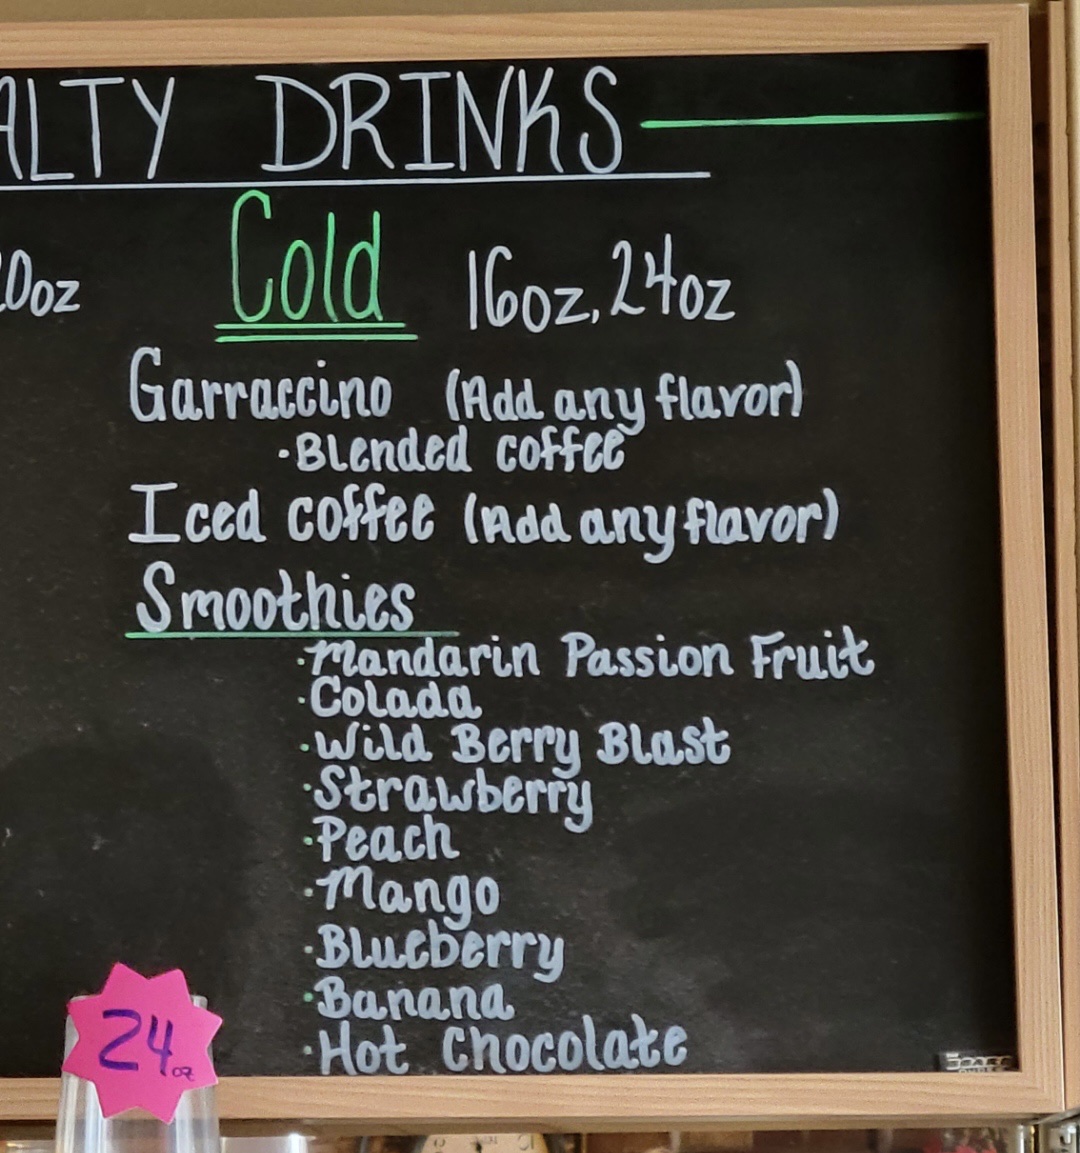 ALTY DRINKS
0oz
Cold 16oz, 24oz
Garraccino (Add any flavor)
·Blended coffee
Iced coffee (Add any flavor)
Smoothies
·Mandarin Passion Fruit
·Colada
·Wild Berry Blast
·Strawberry
·Peach
·Mango
·Blueberry
·Banana
·Hot Chocolate
24oz